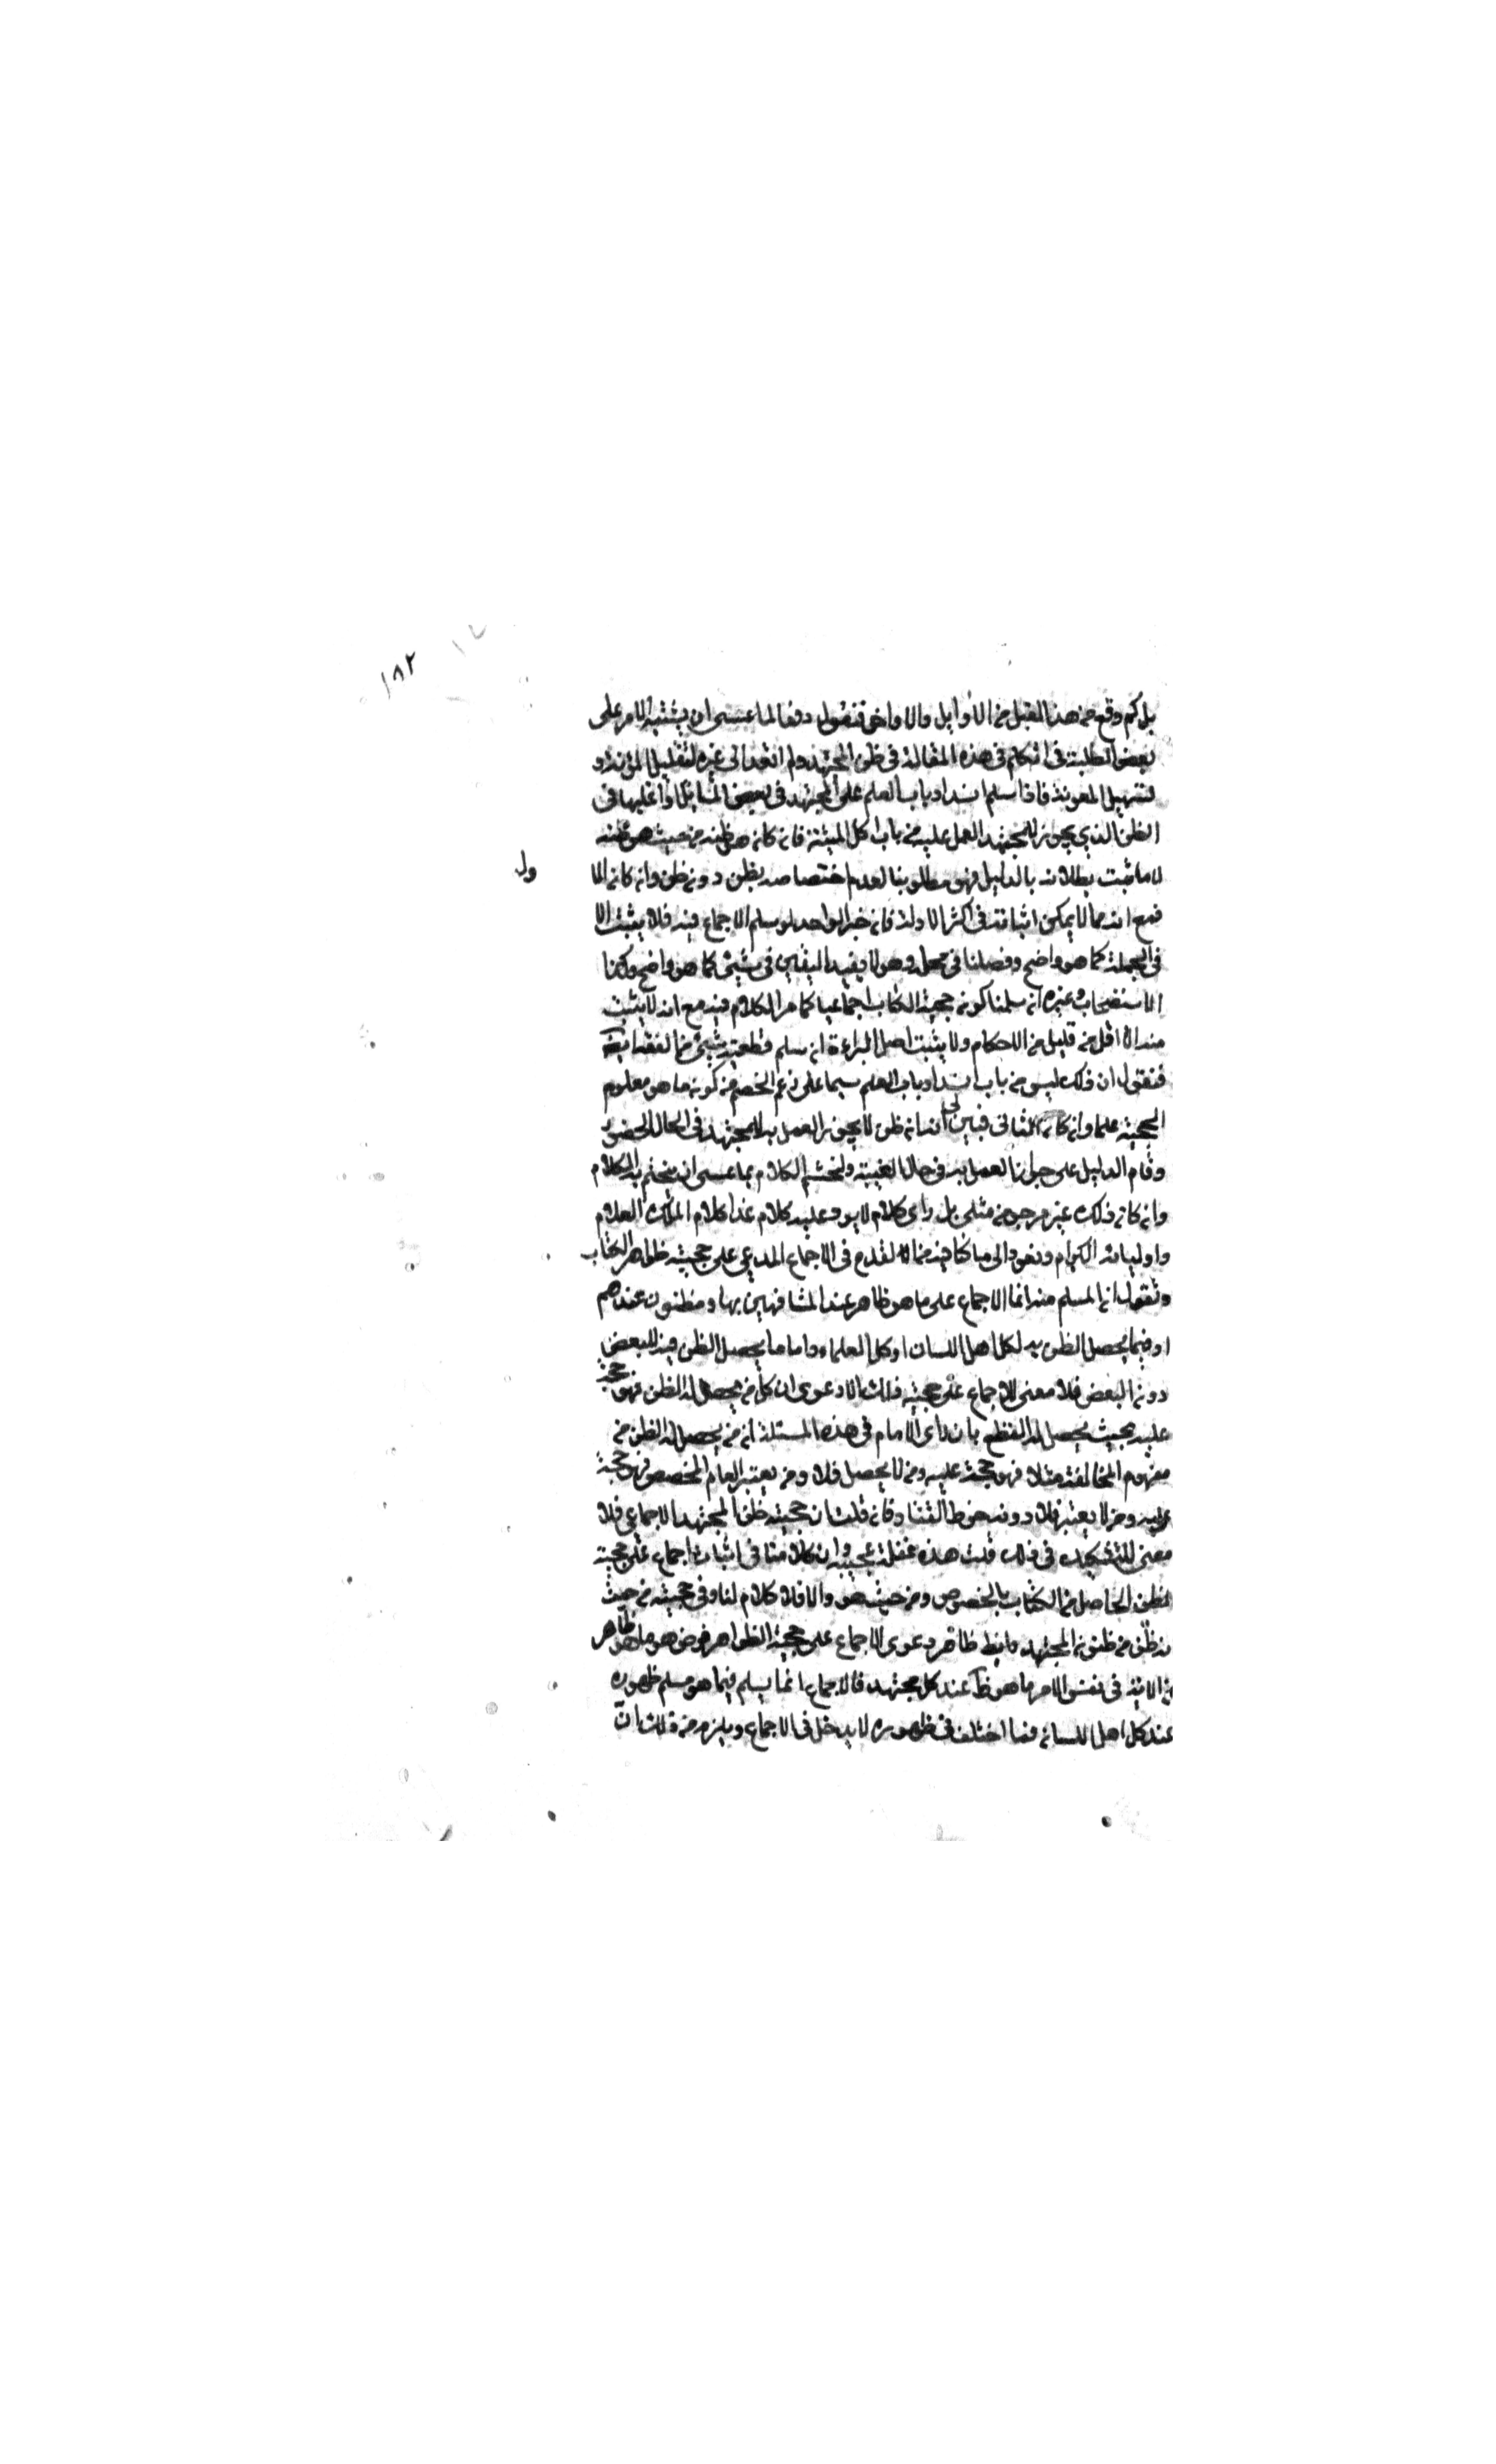 ١٨٢
بل كم وقع من هذا القبيل من الأوايل والأواخر فنقول دفعا لما عسى ان يشتبه الامر على
بعض الطلبة فى ان كلام فى هذه المقالة فى ظن المجتهد ولم اتعد الى غيره لتقليل المؤنة و
لتسهيل المعونة فاذا سلم انسداد باب العلم على المجتهد فى بعض المسائل او اغلبها فى
الظن الذي يجوز للمجتهد العمل عليه من باب اكل الميتة فان كان هو ظنه من حيث هو ظنه
لا ما ثبت بطلانه بالدليل فهو مطلوبنا لعدم اختصاصه بظن دون ظن وان كان الا
ول
فمع انه مما لا يمكن اثباته فى اكثر الادلة فان خبر الواحد لو سلم الاجماع فيه فلا يثبت الا
فى الجملة كما هو واضح وفصلنا فى محله وهو لا يفيد اليقين فى شيئ كما هو واضح وكذا
الاستصحاب وغيره ان سلمنا كون حجية الكتاب اجماعيا كما مر الكلام فيه مع انه لا يثبت
منه الا اقل من قليل من الاحكام ولا يثبت اصل البراءة ان سلم قطعيته شيئ من الفقه
فنقول ان ذلك ليس من باب انسداد باب العلم سيما على زعم الخصم من كون ما هو معلوم
الحجية علما وان كان الثانى فبين لى انه اى ظن لا يجوز العمل به للمجتهد فى الحال الحضور
وقام الدليل على جواز العمل به فى حال الغيبة ولنختم الكلام بما عسى ان يختم به الكلام
وان كان ذلك غير مرجو من مثلى بل واى كلام لا يرد عليه كلام عدا كلام الملك العلام
واوليائه الكرام ونعود الى ما كنا فيه مما تقدم فى الاجماع المدعى على حجية ظاهر الكتاب
ونقول ان المسلم منه انما الاجماع على ما هو ظاهر عند المشافهين بها ومظنون عندهم
او فيما يحصل الظن به لكل اهل اللسان او كل العلماء واما ما يحصل الظن فيه للبعض
دون البعض فلا معنى للاجماع على حجيته فلك الا دعوى ان كل من يحصل له الظن فهو حجة
عليه بحيث يحصل له القطع بان راى الامام فى هذه المسئلة ان من يحصل له الظن من
مفهوم المخالفة مثلا فهو حجة عليه ومن لا يحصل فلا ومن يعتبر العام المخصص فهو حجة
عليه ومن لا يعتبر فلا ودونه خرط القتاد فان قلت ان حجية ظن المجتهد اجماعى فلا
معنى للتشكيك فى ذلك قلت هذه غفلة عجيبة وان كلامنا فى اثبات اجماع على حجية
الظن الحاصل من الكتاب بالخصوص ومن حيث هو والا فلا كلام لنا فى حجيته من حيث
انه ظن من ظنون المجتهد وايضا ظاهر دعوى الاجماع على حجية الظواهر هو ما هو ظاهر
من الاية فى نفس الامر ما هو ظ عند كل مجتهد فالاجماع انما يسلم فيما هو مسلم ظهوره
عند كل اهل اللسان فما اختلف فى ظهوره لا يدخل فى الاجماع ويلزم من ذلك ان